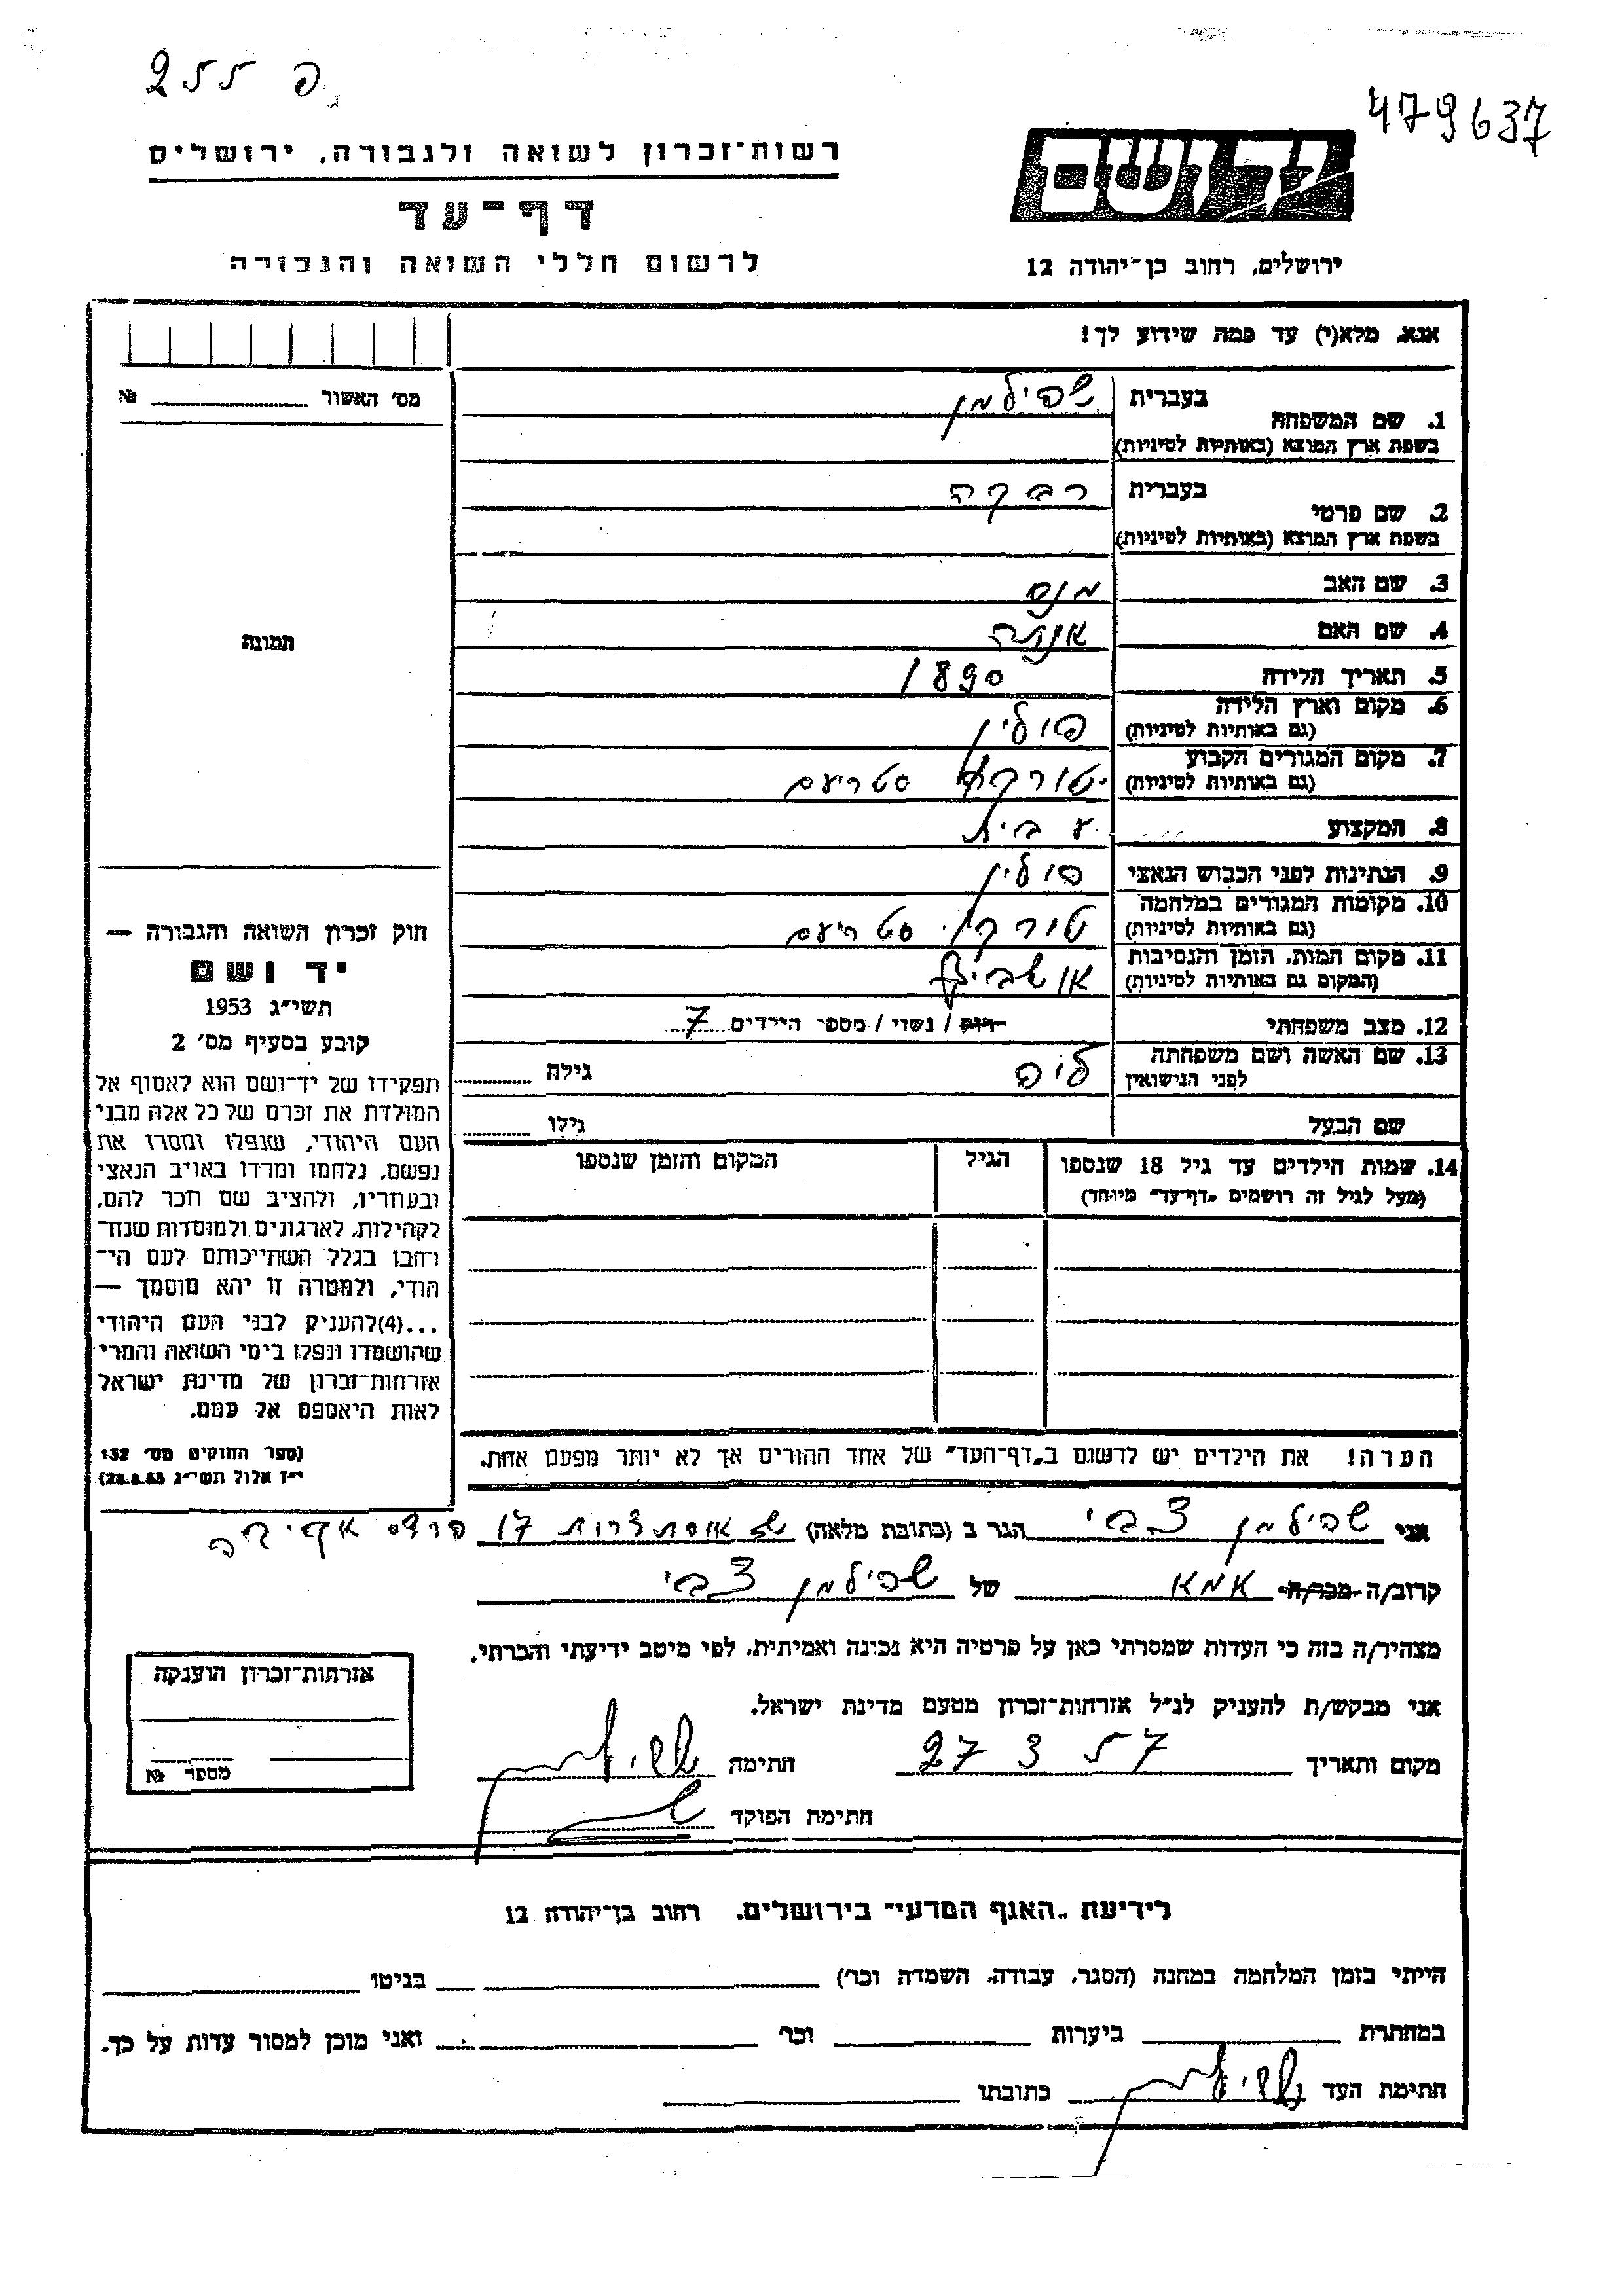 255 פ
479637
רשות־זכרון לשואה ולגבורה, ירושלים
דף־עד
לרשום חללי השואה והגבורה
יד ושם
ירושלים, רחוב בן־יהודה 12
אנא, מלא(י) עד כמה שידוע לך!
מס׳ האשור № 
1. שם המשפחה בעברית שפילמן
בשפת ארץ המוצא (באותיות לטיניות)
2. שם פרטי בעברית רבקה
בשפת ארץ המוצא (באותיות לטיניות)
3. שם האב מנס
4. שם האם
5. תאריך הלידה 1890
6. מקום וארץ הלידה פולין
(גם באותיות לטיניות)
7. מקום המגורים הקבוע
(גם באותיות לטיניות)
8. המקצוע ע בית
9. הנתינות לפני הכבוש הנאצי פולין
10. מקומות המגורים במלחמה
(גם באותיות לטיניות)
11. מקום המות, הזמן והנסיבות אושביץ
(המקום גם באותיות לטיניות)
12. מצב משפחתי רווק / נשוי / מספר הילדים 7
13. שם האשה ושם משפחתה
לפני הנישואין
גילה
שם הבעל גילו
14. שמות הילדים עד גיל 18 שנספו הגיל המקום והזמן שנספו
(מעל לגיל זה רושמים „דף־עד״ מיוחד)
הערה! את הילדים יש לרשום ב„דף־העד״ של אחד ההורים אך לא יותר מפעם אחת.
תמונה
חוק זכרון השואה והגבורה —
יד ושם
תשי״ג 1953
קובע בסעיף מס׳ 2
תפקידו של יד־ושם הוא לאסוף אל
המולדת את זכרם של כל אלה מבני
העם היהודי, שנפלו ומסרו את
נפשם, נלחמו ומרדו באויב הנאצי
ובעוזריו, ולהציב שם וזכר להם,
לקהילות, לארגונים ולמוסדות שנח־
רחבו בגלל השתייכותם לעם הי־
הודי, ולמטרה זו יהא מוסמך —
...(4)להעניק לבני העם היהודי
שהושמדו ונפלו בימי השואה והמרי
אזרחות־זכרון של מדינת ישראל
לאות היאספם אל עמם.
(ספר החוקים מס׳ 132
י״ז אלול תשי״ג 28.8.53)
אני שפילמן צבי הגר ב (כתובת מלאה) 17 פרדס
קרוב/ה מכר/ה אמא של שפילמן צבי
מצהיר/ה בזה כי העדות שמסרתי כאן על פרטיה היא נכונה ואמיתית, לפי מיטב ידיעתי והכרתי.
אני מבקש/ת להעניק לנ״ל אזרחות־זכרון מטעם מדינת ישראל.
מקום ותאריך 27 3 57 חתימה
חתימת הפוקד
אזרחות־זכרון הוענקה
מספר №
לידיעת „האגף המדעי״ בירושלים, רחוב בן־יהודה 12
הייתי בזמן המלחמה במחנה (הסגר, עבודה, השמדה וכו׳) בגיטו
במחתרת ביערות וכו׳ ואני מוכן למסור עדות על כך.
חתימת העד כתובתו